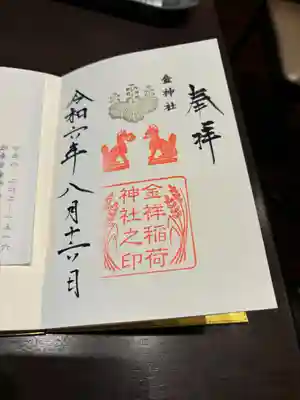 奉拝
金神社
金祥稲荷
神社之印
令和六年八月十六日